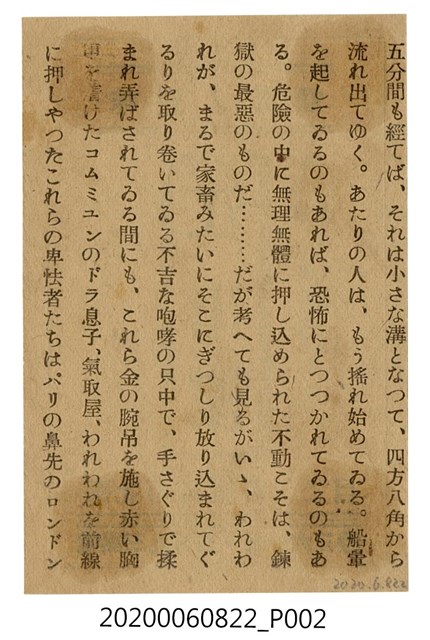 五分間も經てば、それは小さな溝となつて、四方八角から
流れ出てゆく。あたりの人は、もう搖れ始めてゐる。船暈
を起してゐるのもあれば、恐怖にとつつかれてゐるのもあ
る。危險の中に無理無體に押し込められた不動こそは、鍊
獄の最惡のものだ………だが考へても見るがいゝ、われわ
れが、まるで家畜みたいにそこにぎつしり放り込まれてぐ
るりを取り卷いてゐる不吉な咆哮の只中で、手さぐりで揉
まれ弄ばされてゐる間にも、これら金の腕吊を施し赤い胸
甲を着けたコムミユンのドラ息子、氣取屋、われわれを前線
に押しやつたこれらの卑怯者たちは、パリの鼻先のロンドン
2020.6.822
20200060822_P002